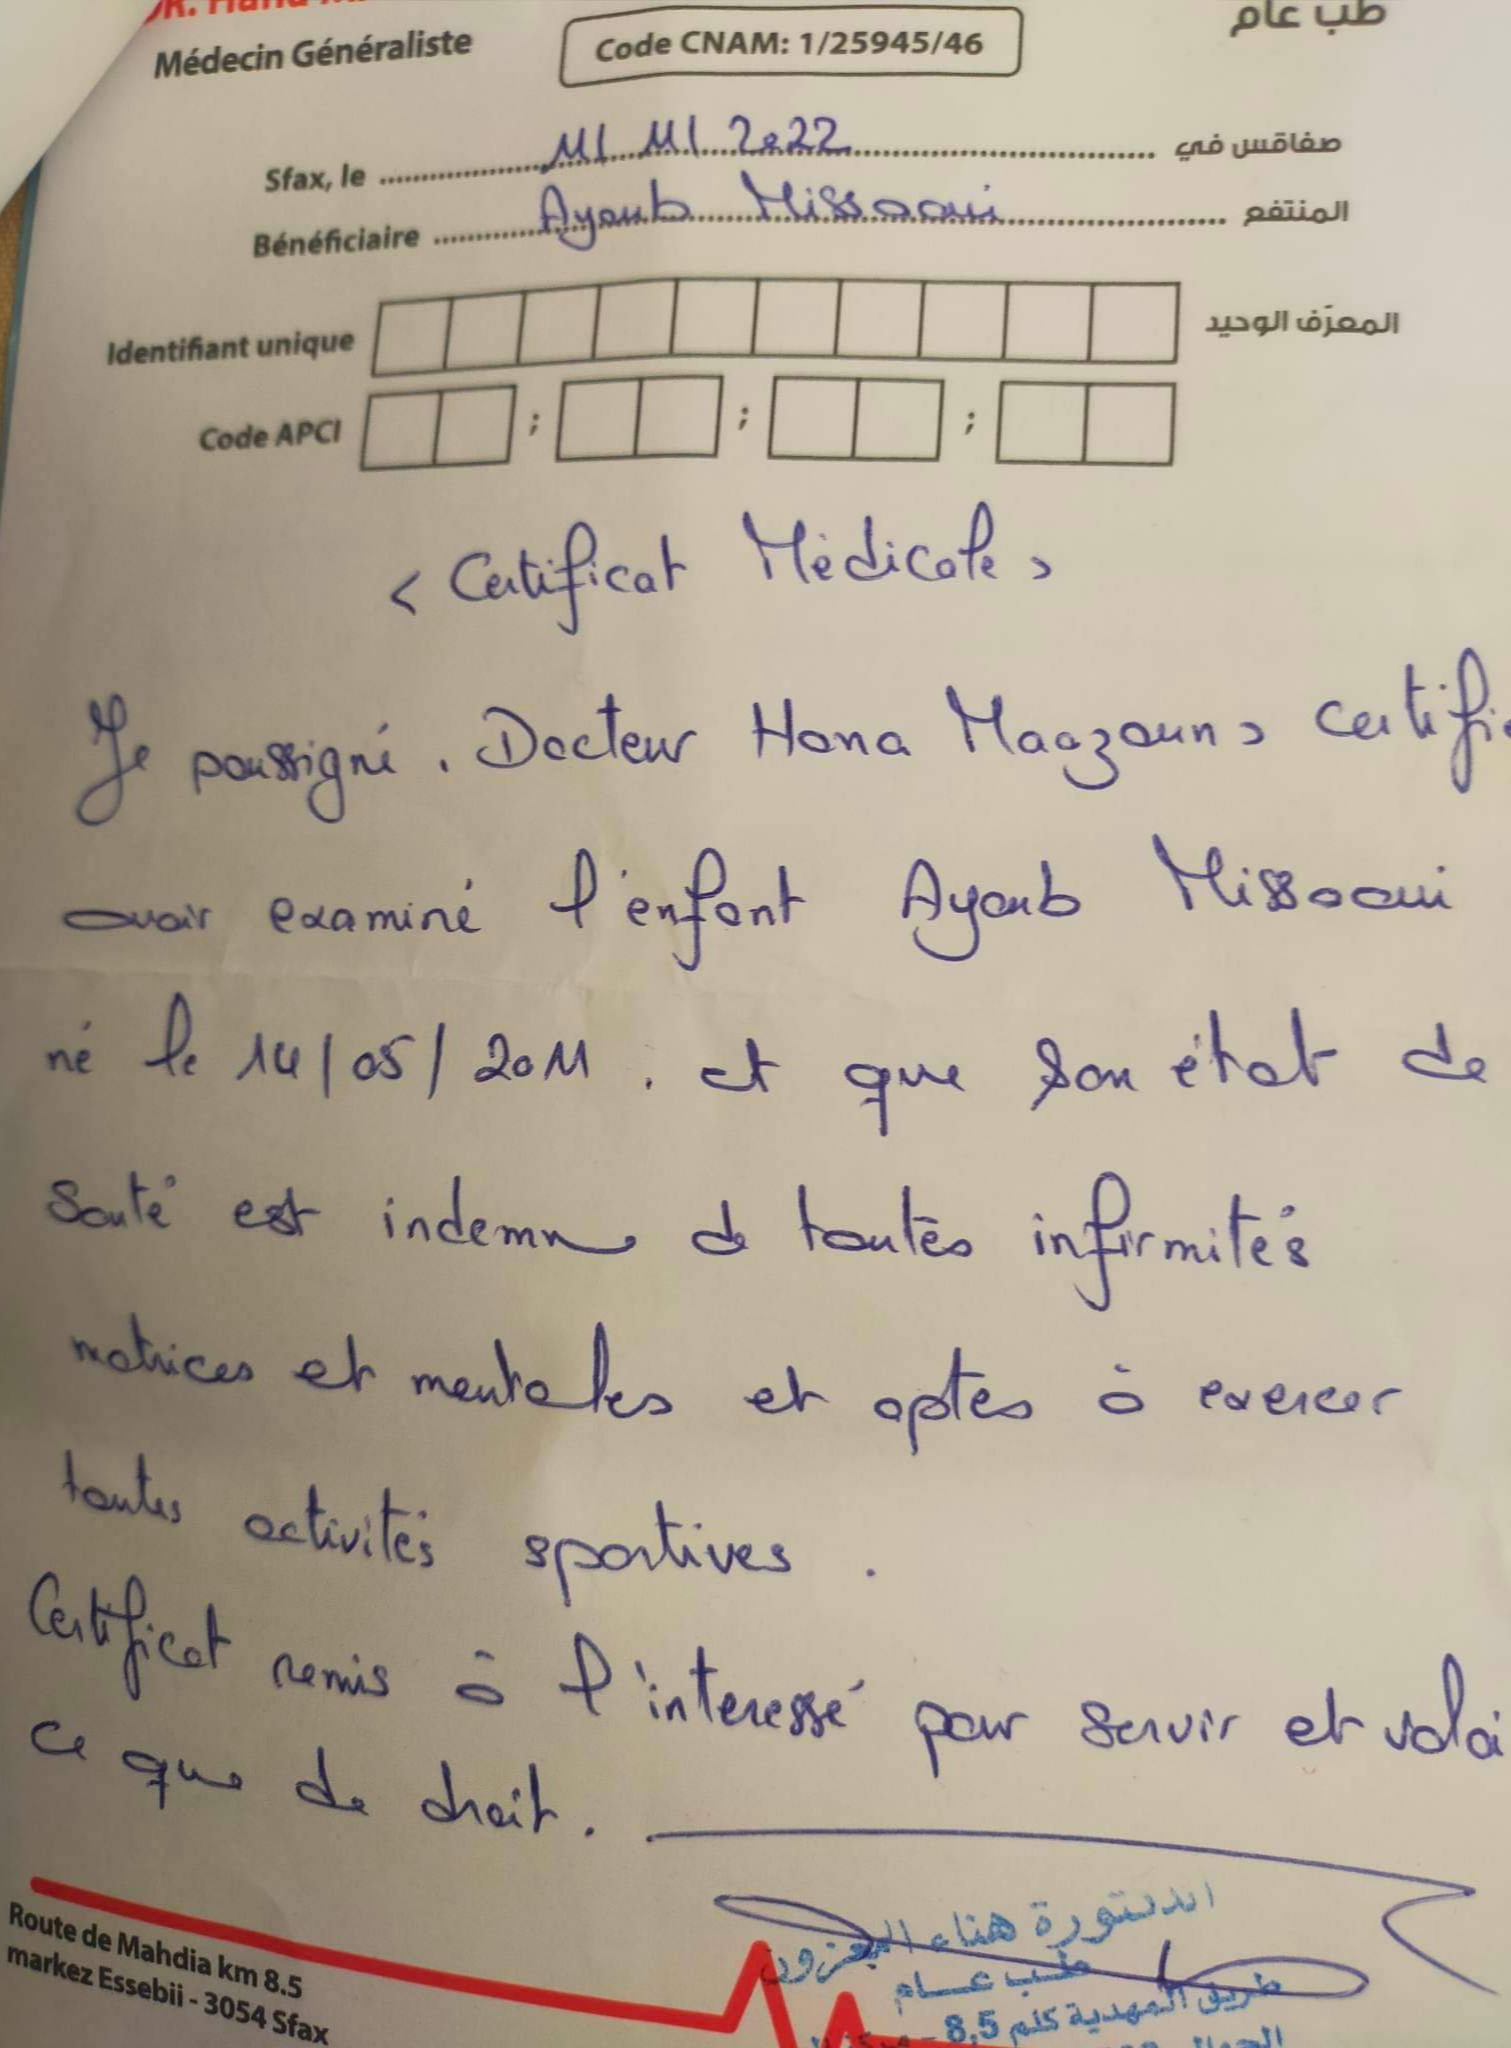 Médecin Généraliste
Code CNAM: 1/25945/46
طب عام
Sfax, le 11/11/2022 صفاقس في
Bénéficiaire Ayoub Missaoui المنتفع
Identifiant unique المعرّف الوحيد
Code APCI ; ; ;
< Certificat Médicale >
Je soussigné. Docteur Hana Maazoun, certifie
avoir examiné l'enfant Ayoub Missaoui
né le 14/05/2011. et que son état de
santé est indemne de toutes infirmités
motrices et mentales et aptes à exercer
toutes activités sportives.
Certificat remis à l'interessé pour servir et valoi
ce que de droit.
Route de Mahdia km 8.5
markez Essebii - 3054 Sfax
الدكتورة هناء المعزون
طب عام
طريق المهدية كلم 8,5 -